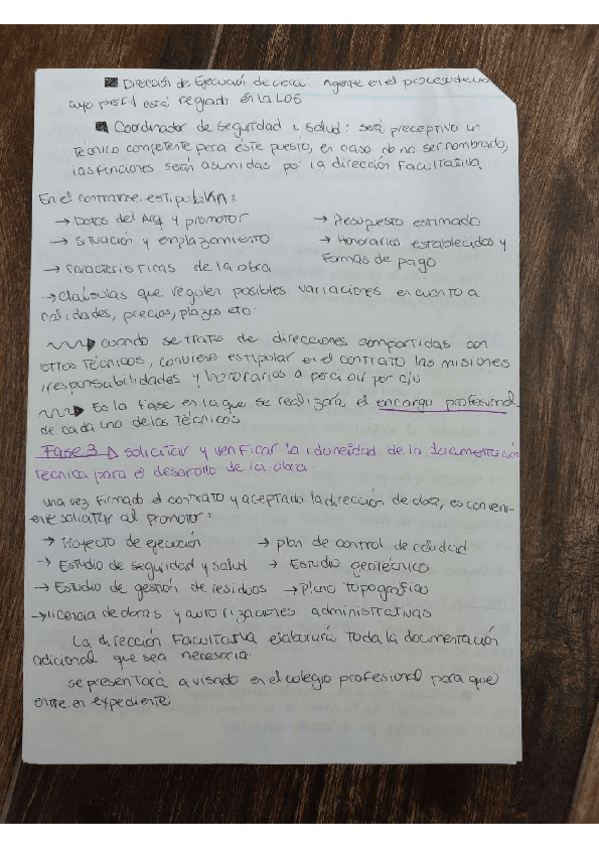 Dirección de Ejecución de obra: Agente en el proceso de
cuyo perfil está reglado en la LOE
Coordinador de seguridad y salud: será preceptivo un
técnico competente para éste puesto, en caso de no ser nombrado,
las funciones serán asumidas por la dirección facultativa.
En el contrato se estipularán:
→ Datos del Arq y promotor → Presupuesto estimado
→ situación y emplazamiento → Honorarios establecidos y
→ características de la obra formas de pago
→ Claúsulas que regulen posibles variaciones en cuanto a
calidades, precios, plazos etc.
cuando se trate de direcciones compartidas con
otros técnicos, conviene estipular en el contrato las misiones
, responsabilidades y honorarios a percibir por c/u
Es la fase en la que se realizará el encargo profesional
de cada uno de los técnicos
Fase 3 solicitar y verificar la idoneidad de la documentación
técnica para el desarrollo de la obra.
una vez firmado el contrato y aceptado la dirección de obra, es conveni-
ente solicitar al promotor:
→ Proyecto de ejecución → plan de control de calidad
→ Estudio de seguridad y salud → Estudio geotécnico
→ Estudio de gestión de residuos → plano topográfico
→ licencia de obras y autorizaciones administrativas
La dirección facultativa elaborará toda la documentación
adicional que sea necesaria.
se presentará a visado en el colegio profesional para que
entre en expediente